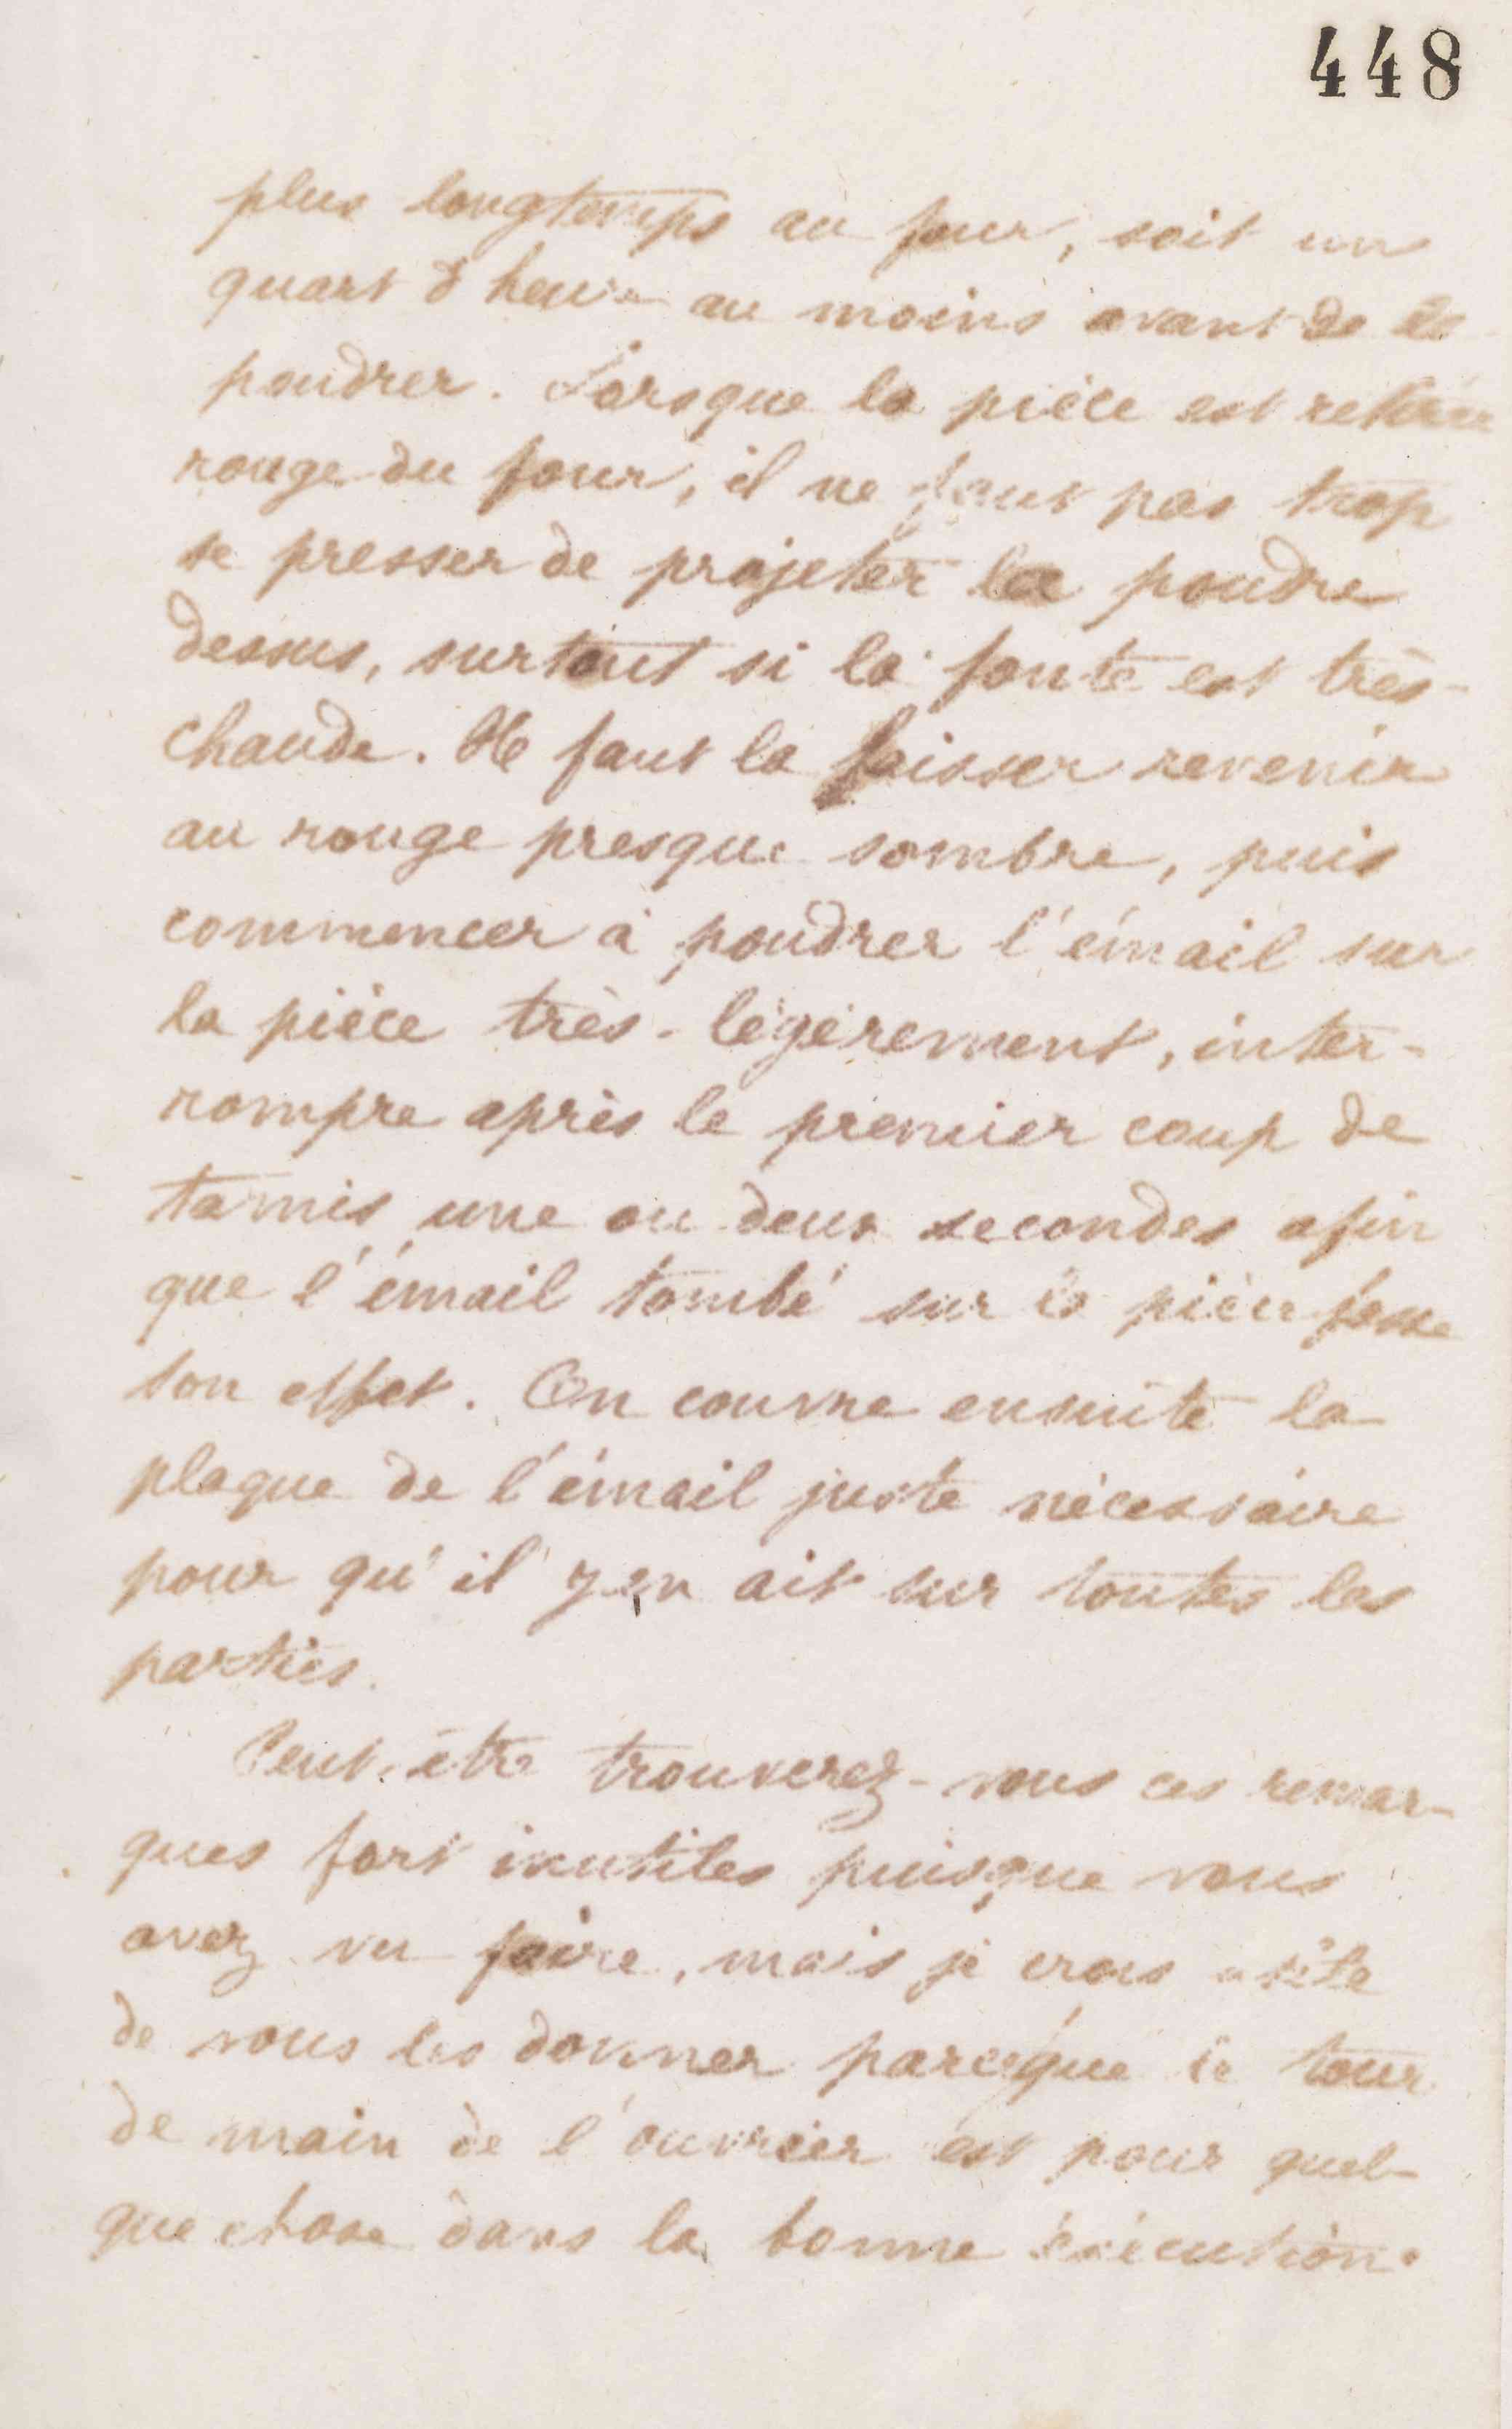 448
plus longtemps au four, soit un
quart d'heure au moins avant de la
poudrer. Lorsque la pièce est retirée
rouge du four, il ne faut pas trop
se presser de projeter la poudre
dessus, surtout si la fonte est très-
chaude. Il faut la laisser revenir
au rouge presque sombre, puis
commencer à poudrer l'émail sur
la pièce très-légèrement, inter-
rompre après le premier coup de
tamis une ou deux secondes afin
que l'émail tombé sur la pièce fasse
son effet. On couvre ensuite la
plaque de l'émail juste nécessaire
pour qu'il y en ait sur toutes les
parties.
Peut-être trouverez-vous ces remar-
ques fort inutiles puisque vous
avez vu faire, mais je crois utile
de vous les donner parceque le tour
de main de l'ouvrier est pour quel-
que chose dans la bonne exécution.